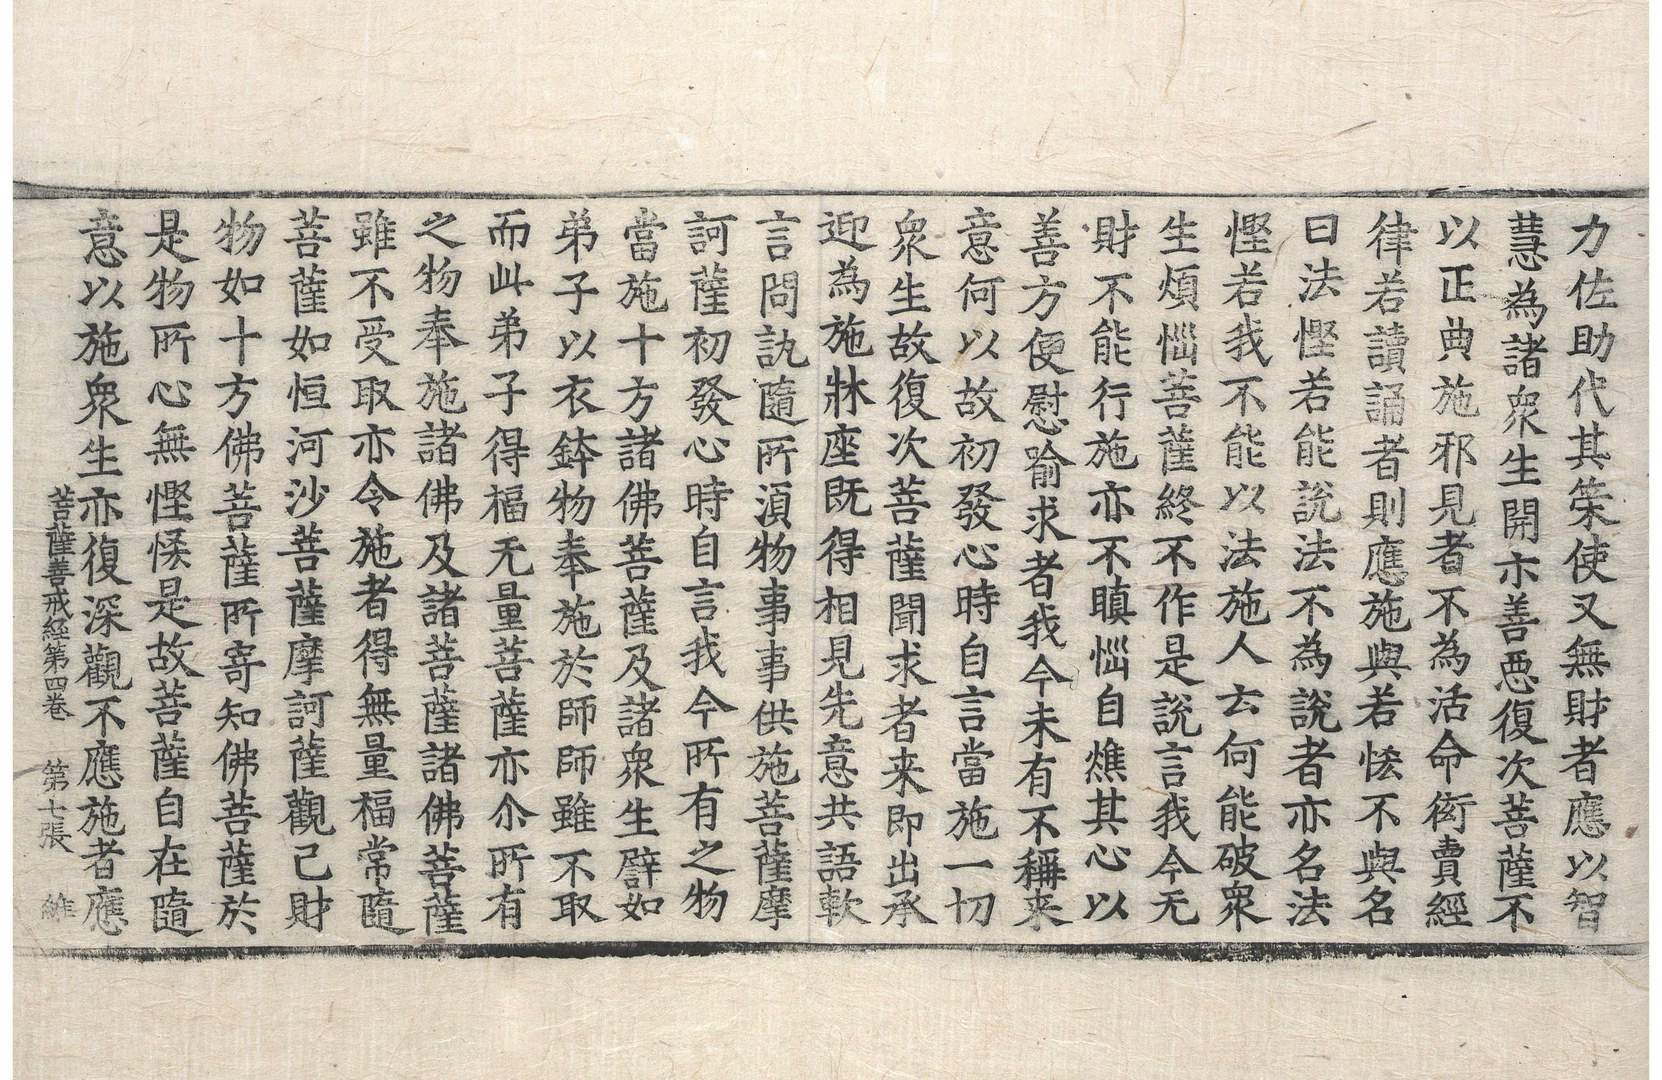 力佐助代其策使又無財者應以智
慧為諸衆生開示善惡復次菩薩不
以正典施邪見者不為活命衒賣經
律若讀誦者則應施與若悋不與名
曰法慳若能說法不為說者亦名法
慳若我不能以法施人云何能破衆
生煩惱菩薩終不作是說言我今无
財不能行施亦不瞋惱自燋其心以
善方便慰喻求者我今未有不稱来
意何以故初發心時自言當施一切
衆生故復次菩薩聞求者来即出承
迎為施牀座既得相見先意共語軟
言問訊隨所湏物事事供施菩薩摩
訶薩初發心時自言我今所有之物
當施十方諸佛菩薩及諸衆生譬如
弟子以衣鉢物奉施於師師雖不取
而此弟子得福无量菩薩亦尒所有
之物奉施諸佛及諸菩薩諸佛菩薩
雖不受取亦令施者得無量福常隨
菩薩如恒河沙菩薩摩訶薩觀己財
物如十方佛菩薩所寄知佛菩薩於
是物所心無慳悋是故菩薩自在隨
意以施衆生亦復深觀不應施者應
菩薩善戒経第四卷 第七張 維